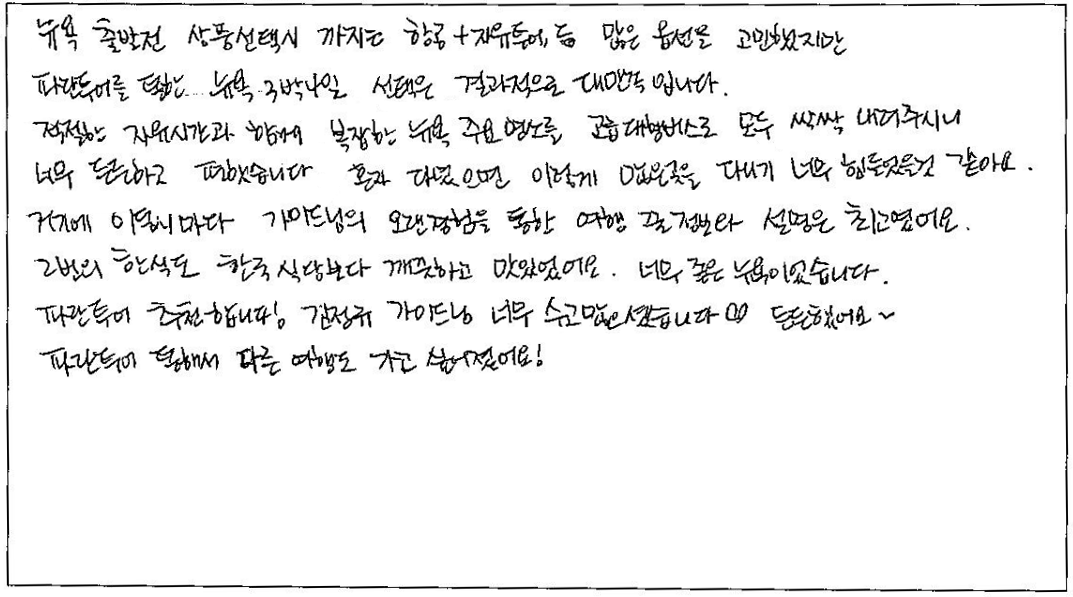 뉴욕 출발전 상품선택시 까지는 항공+자유투어, 등 많은 옵션을 고민했지만
파란투어를 통한 뉴욕 3박4일 선택은 결과적으로 대만족 입니다.
적절한 자유시간과 함께 복잡한 뉴욕 주요명소를 고급대형버스로 모두 싹싹 내려주시니
너무 든든하고 편했습니다 혼자 다녔으면 이렇게 많은곳을 다니기 너무 힘들었을것 같아요.
거기에 이동시마다 가이드님의 오랜경험을 통한 여행 꿀정보와 설명은 최고였어요.
2번의 한식도 한국식당보다 깨끗하고 맛있었어요. 너무 좋은 뉴욕이었습니다.
파란투어 추천합니다! 가이드님 너무 수고많으셨습니다♡ 든든했어요~
파란투어 통해서 다른 여행도 가고 싶어졌어요!